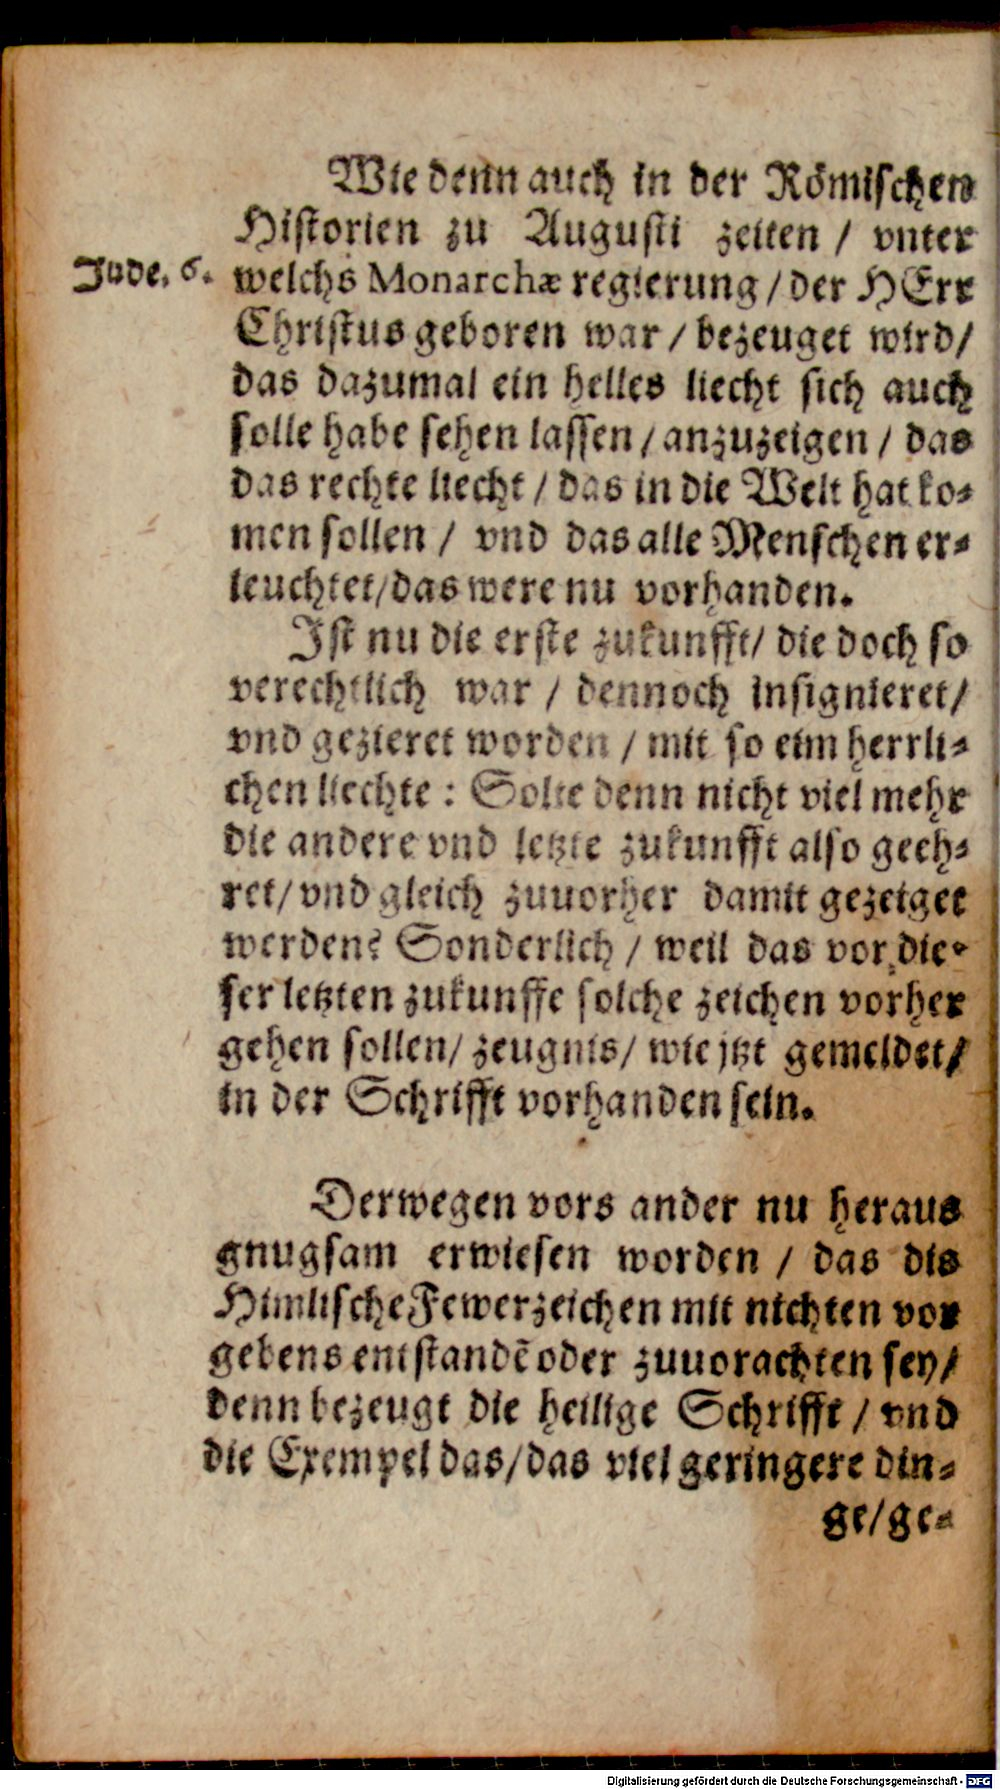 Wie denn auch in der Römischen
Historien zu Augusti zeiten / vnter
Jude. 6.
welchs Monarchæ regierung / der HErr
Christus geboren war / bezeuget wird /
das dazumal ein helles liecht sich auch
solle habe sehen lassen / anzuzeigen / das
das rechte liecht / das in die Welt hat ko⸗
men sollen / vnd das alle Menschen er⸗
leuchtet / das were nu vorhanden.
Ist nu die erste zukunfft / die doch so
verechtlich war / dennoch insignieret /
vnd gezieret worden / mit so eim herrli⸗
chen liechte : Solte denn nicht viel mehr
die andere vnd letzte zukunfft also geeh⸗
ret / vnd gleich zuuorher damit gezeiget
werden? Sonderlich / weil das vor die⸗
ser letzten zukunffe solche zeichen vorher
gehen sollen / zeugnis / wie jtzt gemeldet /
in der Schrifft vorhanden sein.
Derwegen vors ander nu heraus
gnugsam erwiesen worden / das dis
Himlische Fewerzeichen mit nichten vor
gebens entstandẽ oder zuuorachten sey /
denn bezeugt die heilige Schrifft / vnd
die Exempel das / das viel geringere din⸗
ge / ge⸗
Digitalisierung gefördert durch die Deutsche Forschungsgemeinschaft - DFG